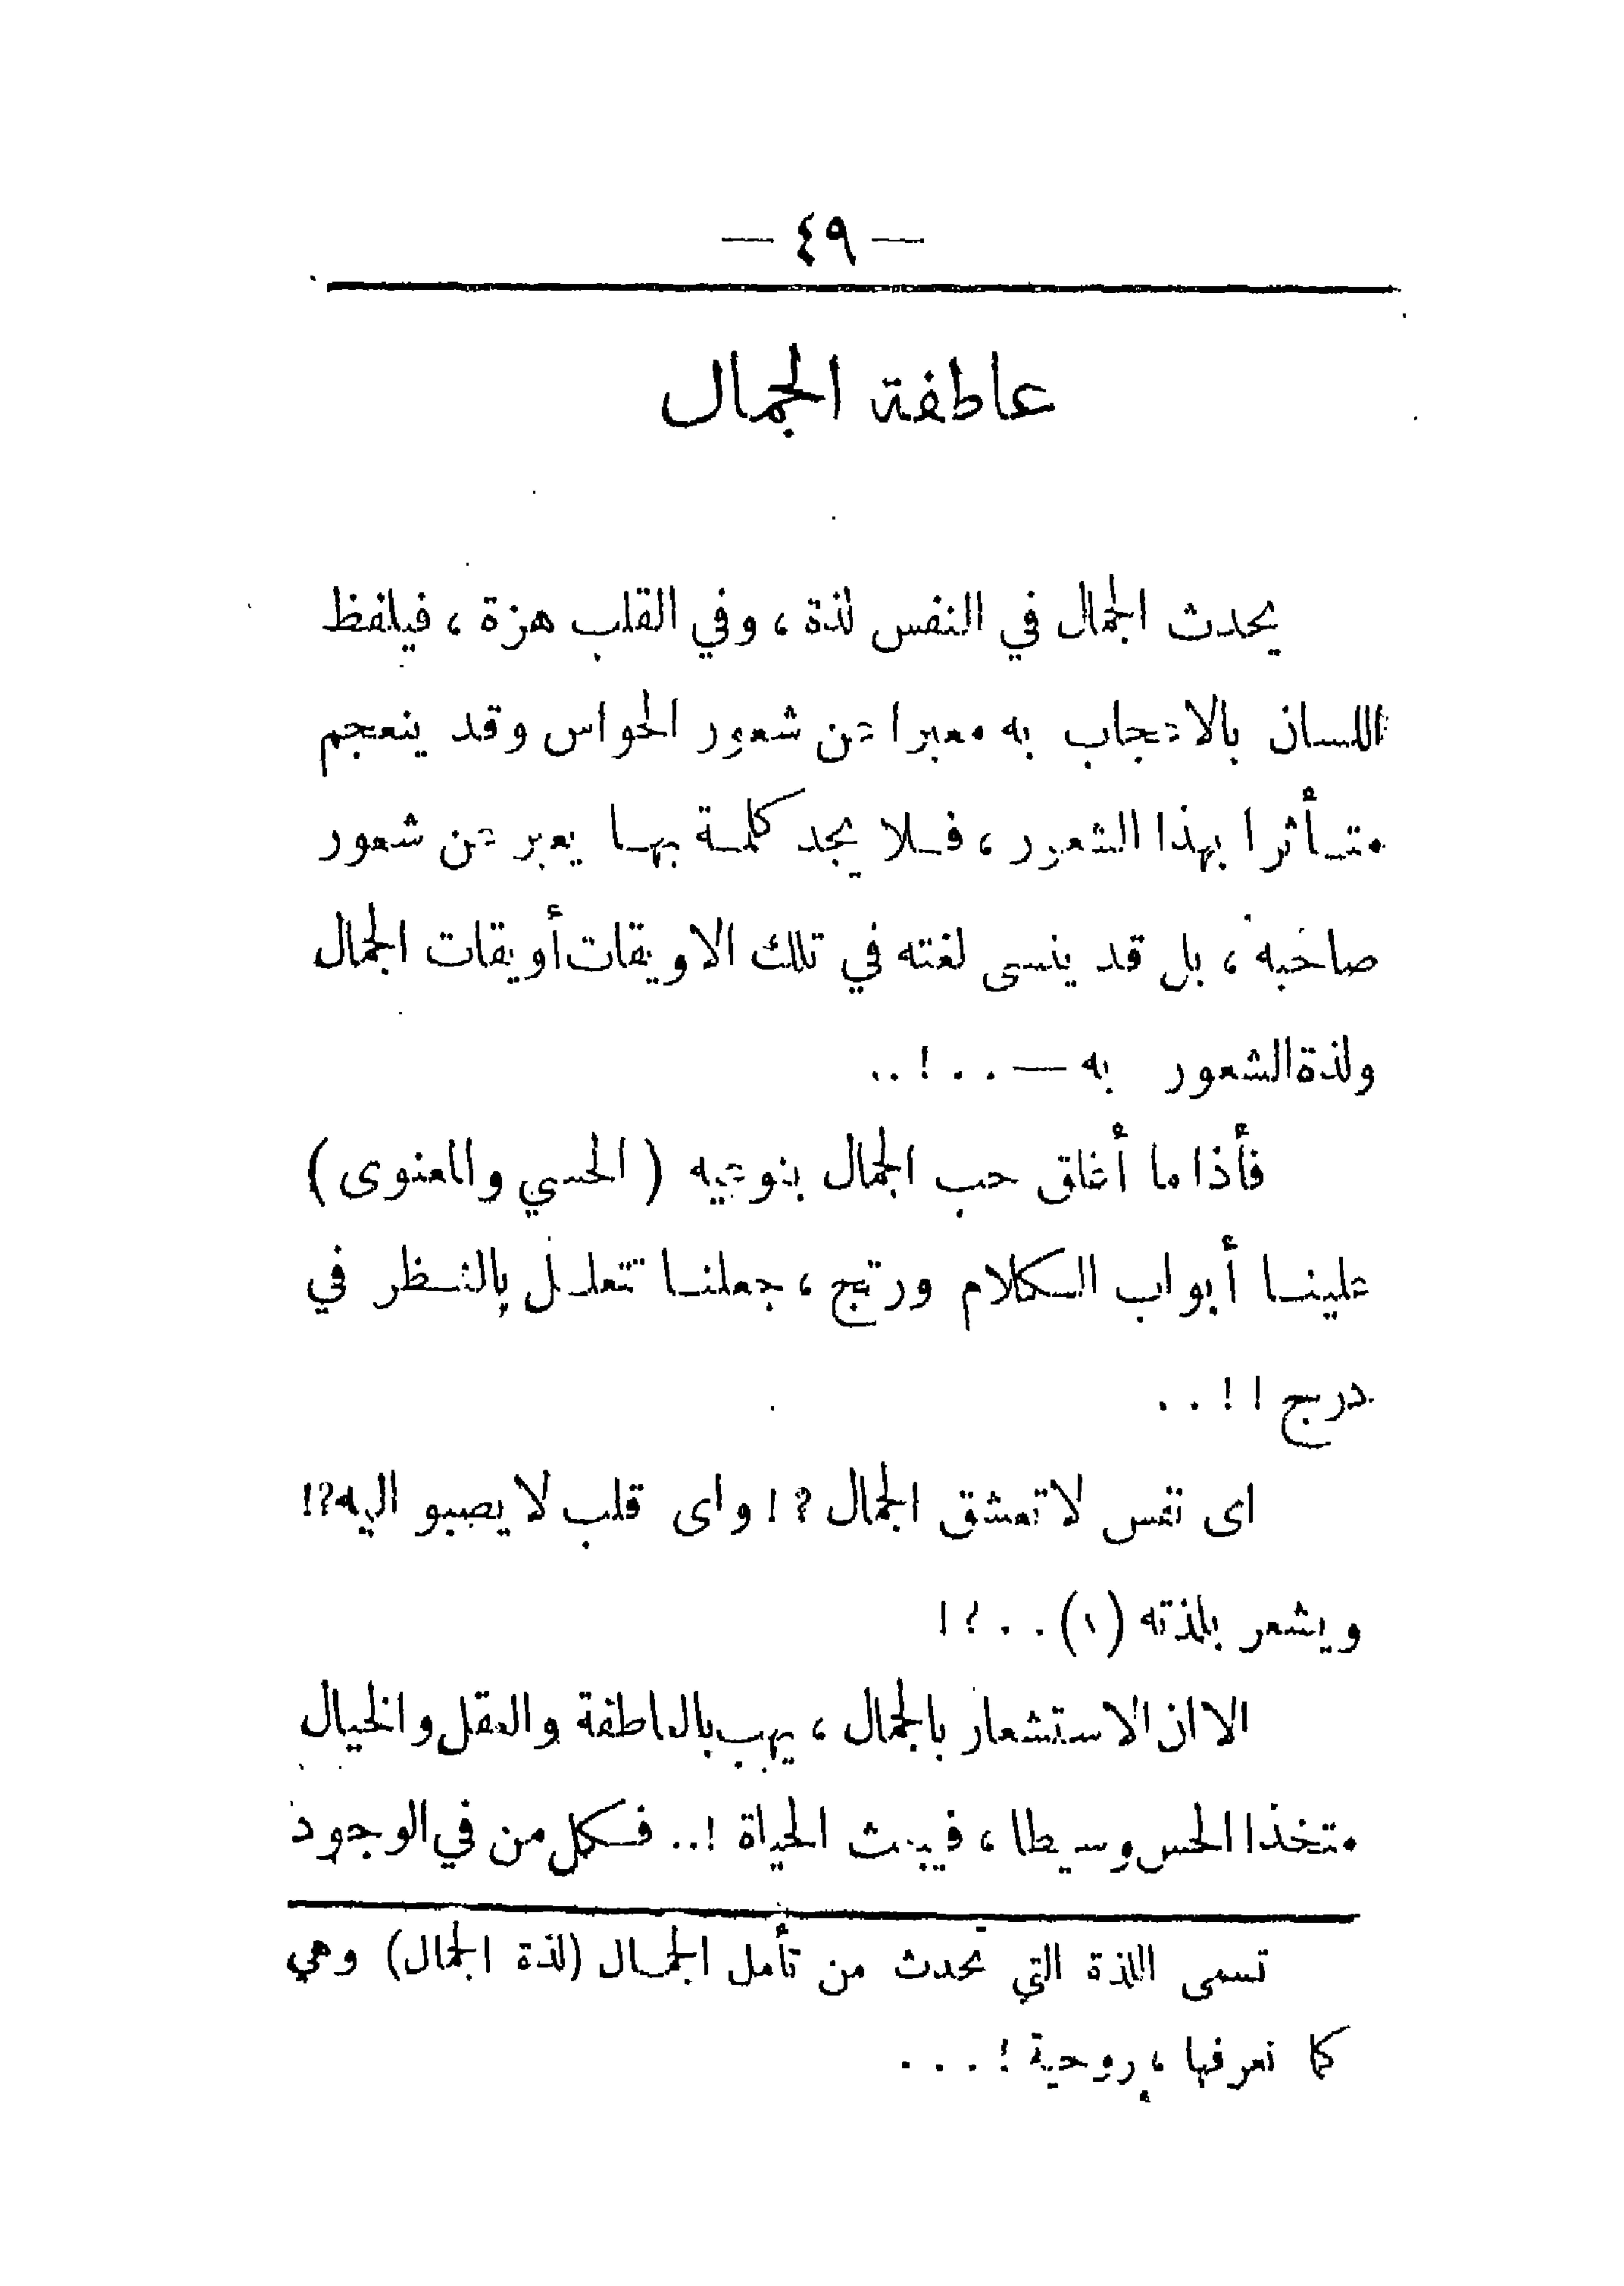 — ٤٩ —
عاطفة الجمال
يحدث الجمال في النفس لذة ، وفي القلب هزة ، فيلفظ
اللسان بالاعجاب به معبرا عن شعور الحواس وقد ينعجم
متأثرا بهذا الشعور ، فلا يجد كلمة بها يعبر عن شعور
صاحبه ، بل قد ينسى لغته في تلك الاويقات أويقات الجمال
ولذة الشعور به — . . ! . .
فأذا ما أغلق حب الجمال بنوعيه ( الحسي والمعنوى )
علينا أبواب الكلام ورتج ، جعلنا نتعلل بالنظر في
درج ! ! . .
اى نفس لا تعشق الجمال ؟ ! واى قلب لا يصبو اليه ؟!
ويشعر بلذته (١) . . ؟ !
الا ان الاستشعار بالجمال ، يهب بالعاطفة والعقل والخيال
متخذا الحس وسيطا ، فيبعث الحياة ! .. فكل من في الوجود
تسمى اللذة التي تحدث من تأمل الجمال (لذة الجمال) وهي
كما نعرفها ، روحية ! . . .